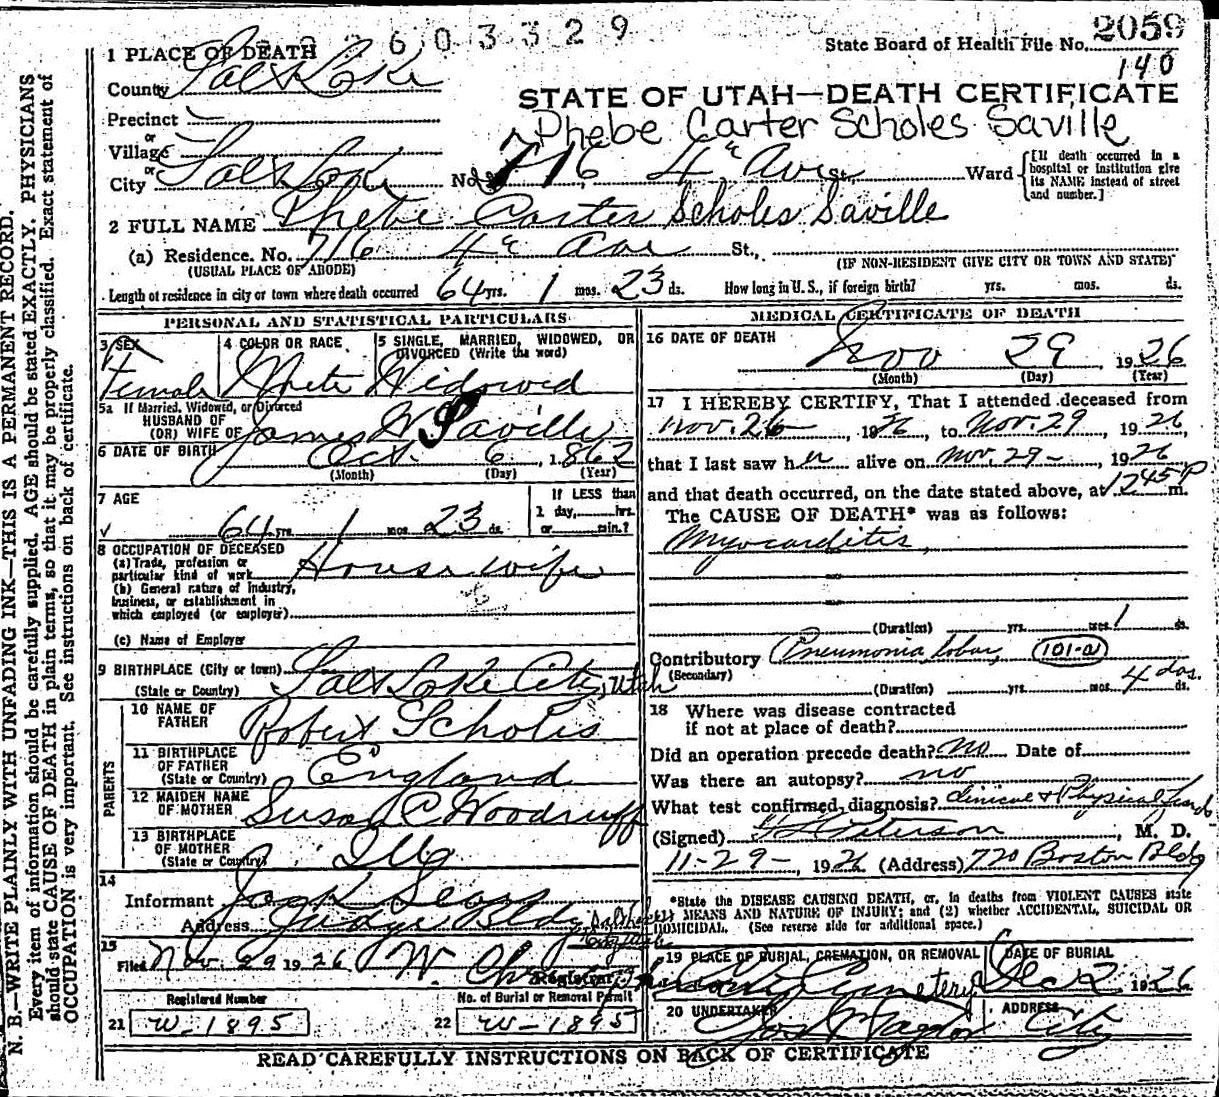 2603329
State Board of Health File No. 2059
140
1 PLACE OF DEATH
County Salt Lake
STATE OF UTAH—DEATH CERTIFICATE
Precinct
Phebe Carter Scholes Saville
or
Village
or
City Salt Lake No. 716 4th Ave St., Ward {[If death occurred in a hospital or institution give its NAME instead of street and number.]
2 FULL NAME Phebe Carter Scholes Saville
(a) Residence. No. 716 4th Ave St.,
(USUAL PLACE OF ABODE) (IF NON-RESIDENT GIVE CITY OR TOWN AND STATE)
Length of residence in city or town where death occurred 64 yrs. 1 mos. 23 ds. How long in U. S., if foreign birth? yrs. mos. ds.
PERSONAL AND STATISTICAL PARTICULARS
3 SEX Female
4 COLOR OR RACE White
5 SINGLE, MARRIED, WIDOWED, OR DIVORCED (Write the word) Widowed
5a If Married, Widowed, or Divorced
HUSBAND OF
(OR) WIFE OF James W Saville
6 DATE OF BIRTH Oct. 6, 1862
(Month) (Day) (Year)
7 AGE 64 yrs. 1 mos. 23 ds.
If LESS than
1 day, hrs.
or min.?
8 OCCUPATION OF DECEASED
(a) Trade, profession or
particular kind of work House wife
(b) General nature of Industry,
business, or establishment in
which employed (or employer)
(c) Name of Employer
9 BIRTHPLACE (City or town) Salt Lake City, Utah
(State or Country)
PARENTS
10 NAME OF FATHER Robert Scholes
11 BIRTHPLACE OF FATHER (State or Country) England
12 MAIDEN NAME OF MOTHER Susan C Woodruff
13 BIRTHPLACE OF MOTHER (State or Country) Ills
14
Informant Jack Sears
Address Judge Bldg Salt Lake City Utah
15
Filed Nov. 29 1926 W.
Registrar
Registered Number
21 W-1895
No. of Burial or Removal Permit
22 W-1895
MEDICAL CERTIFICATE OF DEATH
16 DATE OF DEATH Nov 29, 1926
(Month) (Day) (Year)
17 I HEREBY CERTIFY, That I attended deceased from
Nov. 26, 1926, to Nov. 29, 1926,
that I last saw her alive on Nov. 29, 1926
and that death occurred, on the date stated above, at 1245 P m.
The CAUSE OF DEATH* was as follows:
Myocarditis,
(Duration) yrs. mos. 1 ds.
Contributory Pneumonia lobar, 101-a
(Secondary)
(Duration) yrs. mos. 4 das. ds.
18 Where was disease contracted
if not at place of death?
Did an operation precede death? No Date of
Was there an autopsy? no
What test confirmed diagnosis? Clinical & Physical finds
(Signed) M. D.
11-29- 1926 (Address) 720 Boston Bldg
*State the DISEASE CAUSING DEATH, or, in deaths from VIOLENT CAUSES state
MEANS AND NATURE OF INJURY; and (2) whether ACCIDENTAL, SUICIDAL OR
HOMICIDAL. (See reverse side for additional space.)
19 PLACE OF BURIAL, CREMATION, OR REMOVAL Cemetery
DATE OF BURIAL Dec 2 1926
20 UNDERTAKER Jos Taylor
ADDRESS City
READ CAREFULLY INSTRUCTIONS ON BACK OF CERTIFICATE
N. B.—WRITE PLAINLY WITH UNFADING INK—THIS IS A PERMANENT RECORD.
Every item of information should be carefully supplied. AGE should be stated EXACTLY. PHYSICIANS
should state CAUSE OF DEATH in plain terms, so that it may be properly classified. Exact statement of
OCCUPATION is very important. See instructions on back of certificate.